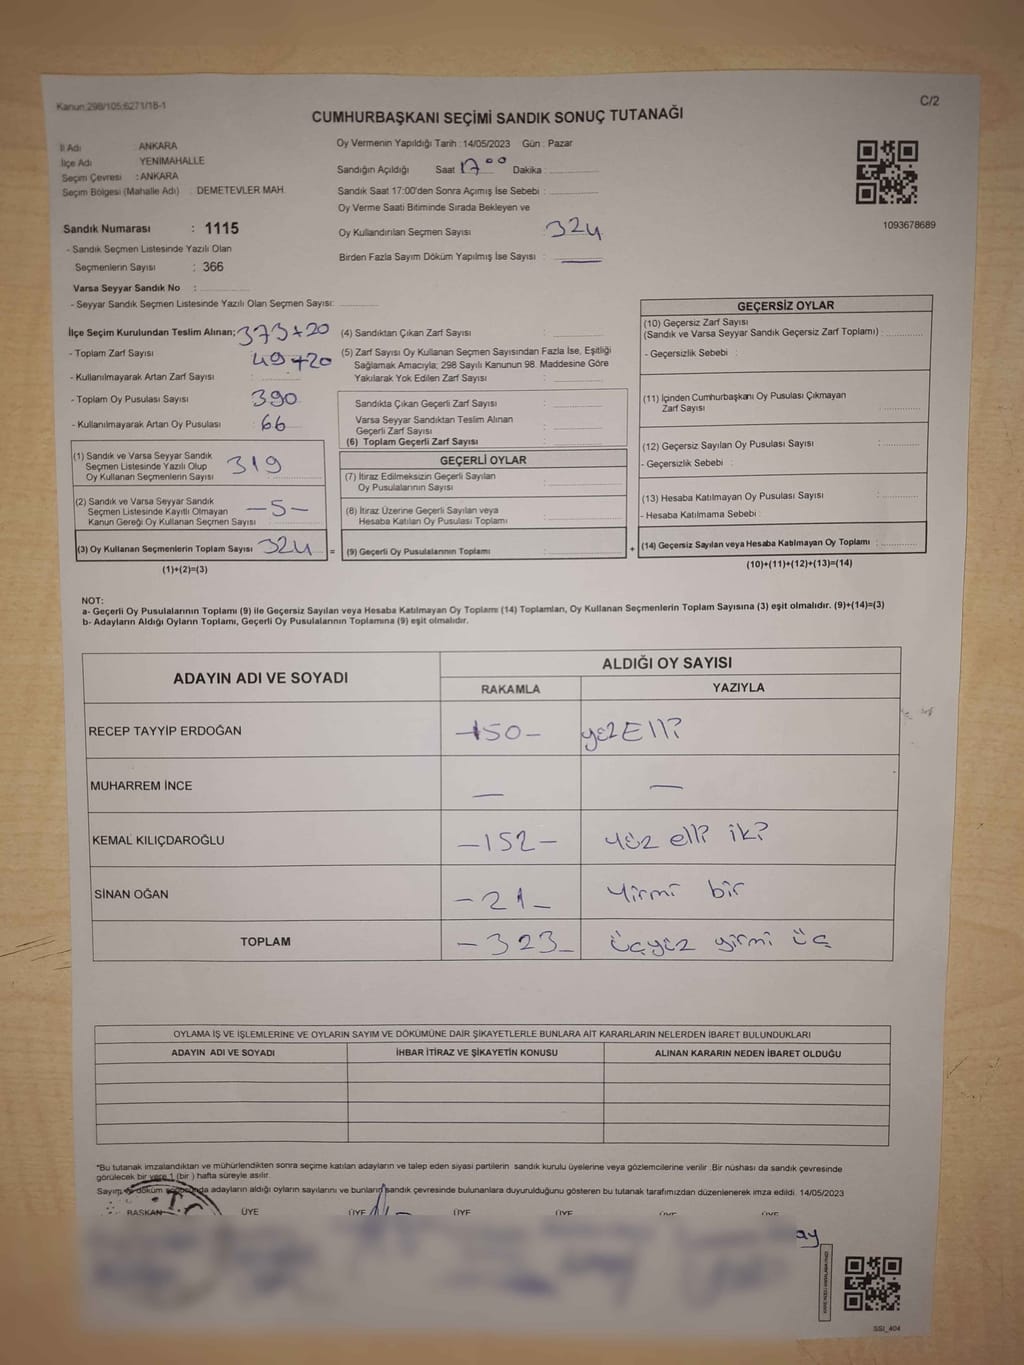 Kanun:298/105;6271/18-1
C/2
CUMHURBAŞKANI SEÇİMİ SANDIK SONUÇ TUTANAĞI
İl Adı : ANKARA
İlçe Adı : YENİMAHALLE
Seçim Çevresi : ANKARA
Seçim Bölgesi (Mahalle Adı) : DEMETEVLER MAH.
Sandık Numarası : 1115
- Sandık Seçmen Listesinde Yazılı Olan
Seçmenlerin Sayısı : 366
Varsa Seyyar Sandık No :
- Seyyar Sandık Seçmen Listesinde Yazılı Olan Seçmen Sayısı:
Oy Vermenin Yapıldığı Tarih : 14/05/2023 Gün : Pazar
Sandığın Açıldığı Saat 17 00 Dakika :
Sandık Saat 17:00'den Sonra Açımış İse Sebebi :
Oy Verme Saati Bitiminde Sırada Bekleyen ve
Oy Kullandırılan Seçmen Sayısı : 324
Birden Fazla Sayım Döküm Yapılmış İse Sayısı :
1093678689
İlçe Seçim Kurulundan Teslim Alınan; 373+20
- Toplam Zarf Sayısı 49+20
- Kullanılmayarak Artan Zarf Sayısı :
- Toplam Oy Pusulası Sayısı : 390
- Kullanılmayarak Artan Oy Pusulası : 66
(1) Sandık ve Varsa Seyyar Sandık
Seçmen Listesinde Yazılı Olup
Oy Kullanan Seçmenlerin Sayısı 319
(2) Sandık ve Varsa Seyyar Sandık
Seçmen Listesinde Kayıtlı Olmayan
Kanun Gereği Oy Kullanan Seçmen Sayısı : -5-
(3) Oy Kullanan Seçmenlerin Toplam Sayısı 324
(1)+(2)=(3)
(4) Sandıktan Çıkan Zarf Sayısı
(5) Zarf Sayısı Oy Kullanan Seçmen Sayısından Fazla İse, Eşitliği
Sağlamak Amacıyla; 298 Sayılı Kanunun 98. Maddesine Göre
Yakılarak Yok Edilen Zarf Sayısı :
Sandıkta Çıkan Geçerli Zarf Sayısı :
Varsa Seyyar Sandıktan Teslim Alınan
Geçerli Zarf Sayısı :
(6) Toplam Geçerli Zarf Sayısı :
GEÇERLİ OYLAR
(7) İtiraz Edilmeksizin Geçerli Sayılan
Oy Pusulalarının Sayısı :
(8) İtiraz Üzerine Geçerli Sayılan veya
Hesaba Katılan Oy Pusulası Toplamı :
= (9) Geçerli Oy Pusulalarının Toplamı :
GEÇERSİZ OYLAR
(10) Geçersiz Zarf Sayısı
(Sandık ve Varsa Seyyar Sandık Geçersiz Zarf Toplamı) :
- Geçersizlik Sebebi :
(11) İçinden Cumhurbaşkanı Oy Pusulası Çıkmayan
Zarf Sayısı :
(12) Geçersiz Sayılan Oy Pusulası Sayısı :
- Geçersizlik Sebebi :
(13) Hesaba Katılmayan Oy Pusulası Sayısı :
- Hesaba Katılmama Sebebi :
+ (14) Geçersiz Sayılan veya Hesaba Katılmayan Oy Toplamı :
(10)+(11)+(12)+(13)=(14)
NOT:
a- Geçerli Oy Pusulalarının Toplamı (9) ile Geçersiz Sayılan veya Hesaba Katılmayan Oy Toplamı (14) Toplamları, Oy Kullanan Seçmenlerin Toplam Sayısına (3) eşit olmalıdır. (9)+(14)=(3)
b- Adayların Aldığı Oyların Toplamı, Geçerli Oy Pusulalarının Toplamına (9) eşit olmalıdır.
ADAYIN ADI VE SOYADI
ALDIĞI OY SAYISI
RAKAMLA YAZIYLA
RECEP TAYYİP ERDOĞAN -150- yüz Elli
MUHARREM İNCE — —
KEMAL KILIÇDAROĞLU -152- Yüz elli iki
SİNAN OĞAN -21- Yirmi bir
TOPLAM -323- üçyüz yirmi üç
OYLAMA İŞ VE İŞLEMLERİNE VE OYLARIN SAYIM VE DÖKÜMÜNE DAİR ŞİKAYETLERLE BUNLARA AİT KARARLARIN NELERDEN İBARET BULUNDUKLARI
ADAYIN ADI VE SOYADI İHBAR İTİRAZ VE ŞİKAYETİN KONUSU ALINAN KARARIN NEDEN İBARET OLDUĞU
*Bu tutanak imzalandıktan ve mühürlendikten sonra seçime katılan adayların ve talep eden siyasi partilerin sandık kurulu üyelerine veya gözlemcilerine verilir .Bir nüshası da sandık çevresinde
görülecek bir yere 1 (bir ) hafta süreyle asılır.
Sayım ve döküm sonucunda adayların aldığı oyların sayılarını ve bunların sandık çevresinde bulunanlara duyurulduğunu gösteren bu tutanak tarafımızdan düzenlenerek imza edildi. 14/05/2023
BAŞKAN ÜYE ÜYE ÜYE ÜYE ÜYE ÜYE
ay
SSI_404